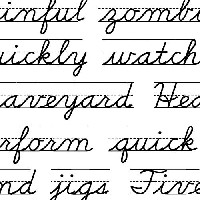 inful zombi
uickly watch
aveyard Hea
rform quick
nd jigs Five